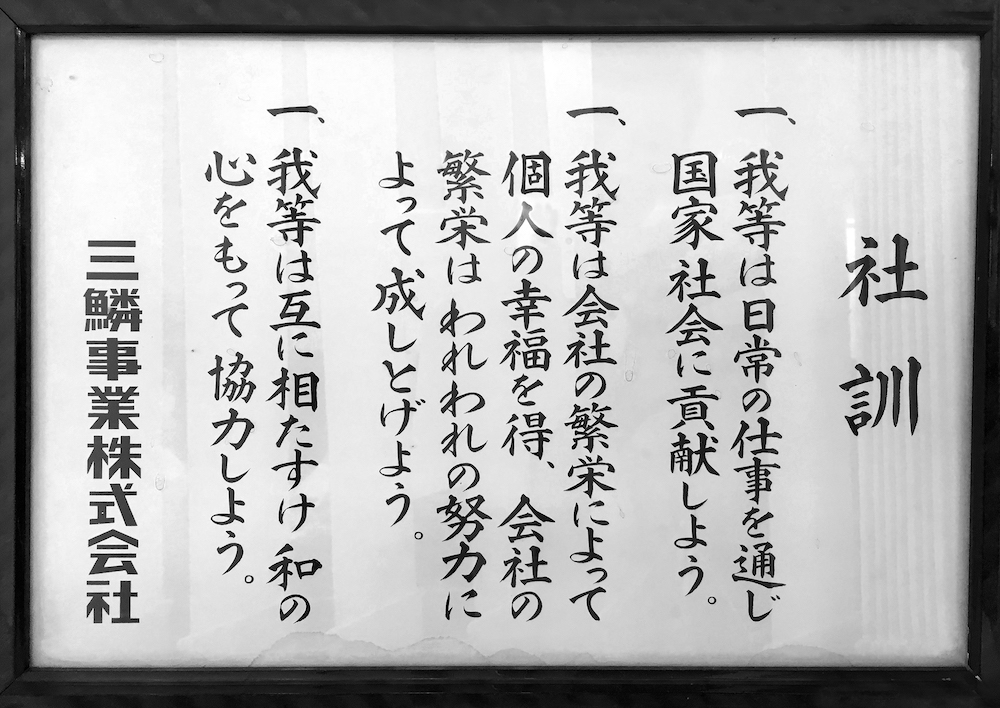 社訓
一、我等は日常の仕事を通じ
国家社会に貢献しよう。
一、我等は会社の繁栄によって
個人の幸福を得、会社の
繁栄はわれわれの努力に
よって成しとげよう。
一、我等は互に相たすけ和の
心をもって協力しよう。
三鱗事業株式会社